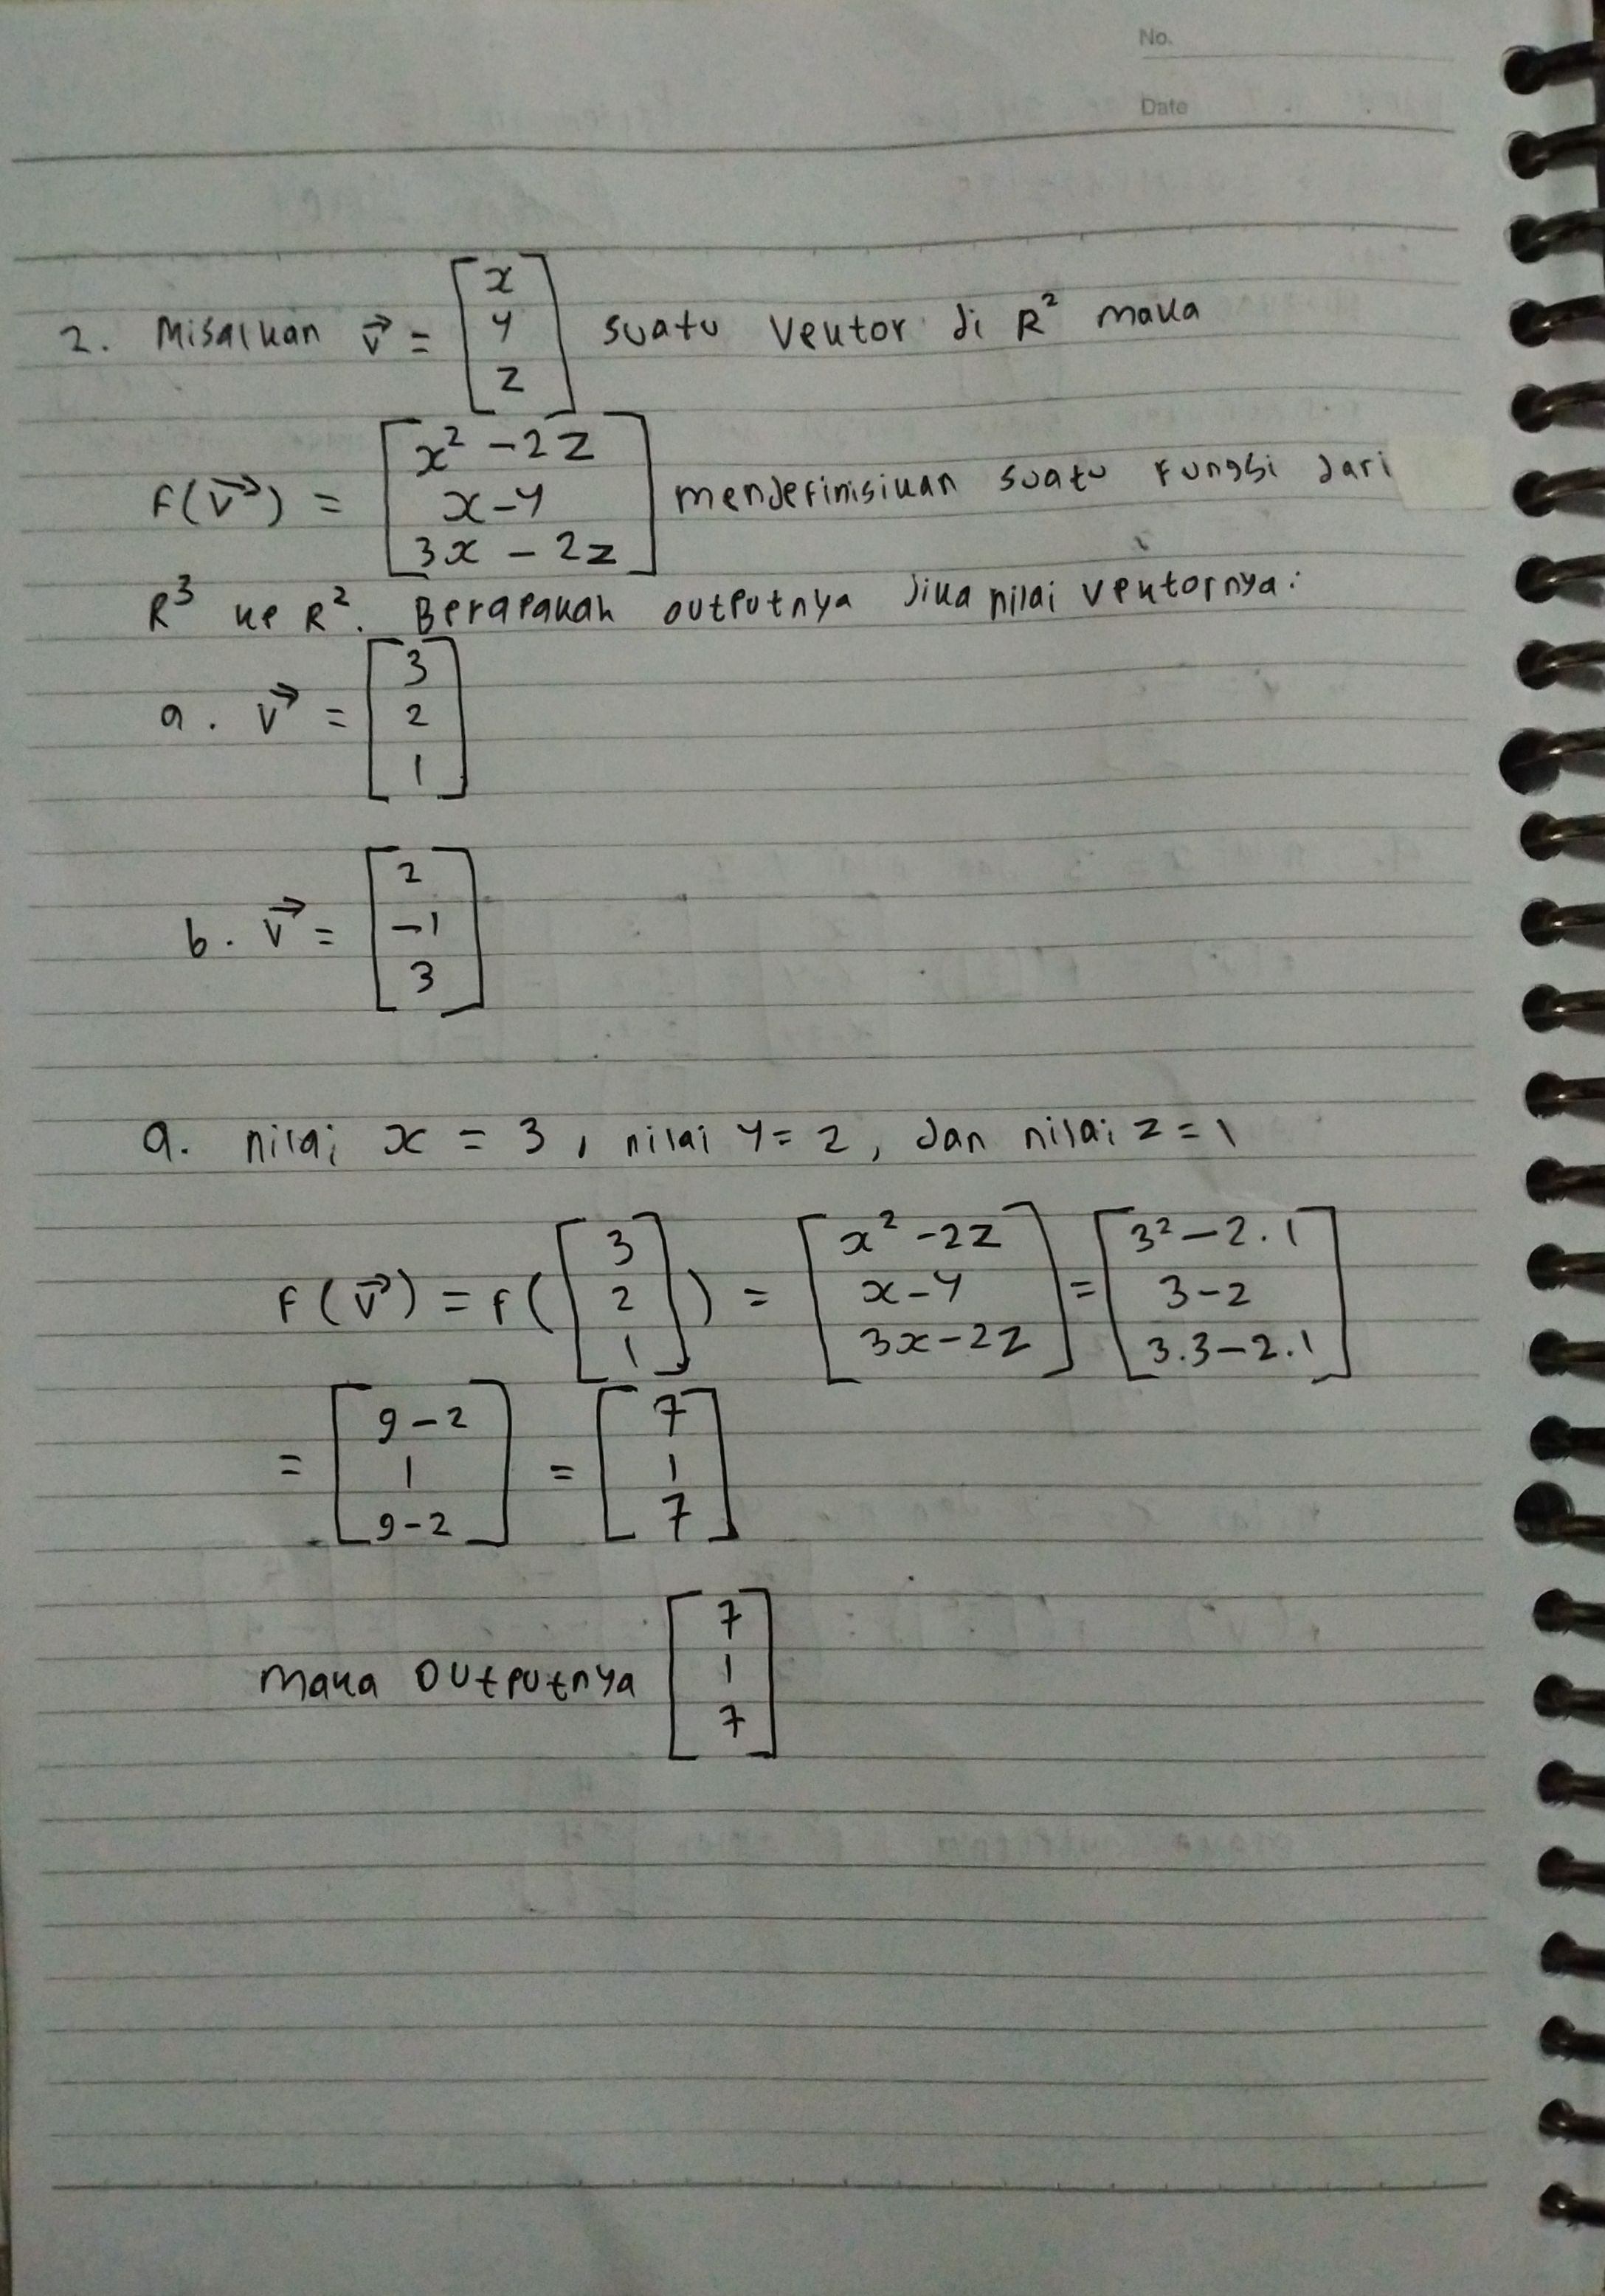 No.
Date
2. Misalkan v⃗ = [x y z] suatu vektor di R² maka
F(v⃗) = [x² - 2z x - y 3x - 2z] mendefinisikan suatu fungsi dari
R³ ke R². Berapakah outputnya jika nilai vektornya:
a. v⃗ = [3 2 1]
b. v⃗ = [2 -1 3]
a. nilai x = 3, nilai y = 2, dan nilai z = 1
F(v⃗) = f([3 2 1]) = [x² - 2z x - y 3x - 2z] = [3² - 2.1 3 - 2 3.3 - 2.1]
= [9 - 2 1 9 - 2] = [7 1 7]
maka outputnya [7 1 7]